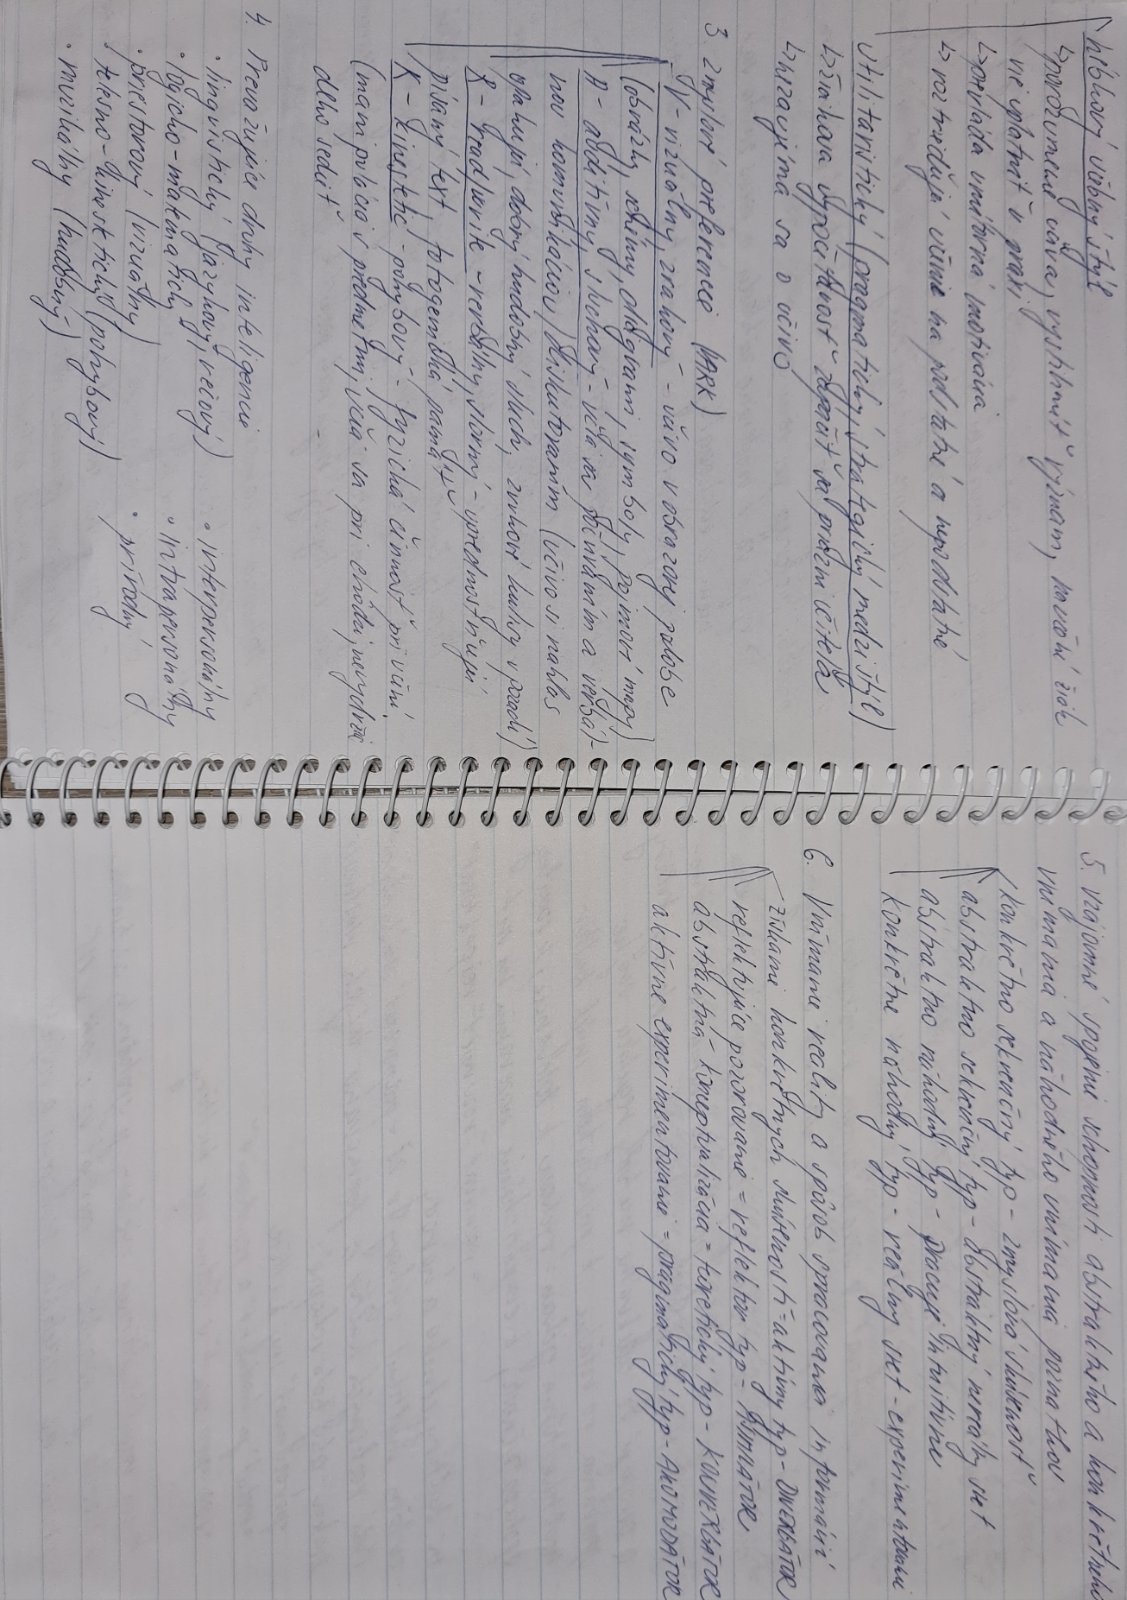 hĺbkový učebný štýl
↳ porozumenie učiva, vystihnúť význam,
ne uplatniť v praxi
↳ prevláda vnútorná motivácia
↳ roztrieďujú učivo na podstatné a nepodstatné
utilitaristický (pragmatický, strategický medzištýl)
↳ žiakova vypočítavosť zapáčiť sa učiteľa
↳ nezaujíma sa o učivo
3. zmyslové preferencie (VARK)
V - vizuálny, zrakový - učivo v obrazovej podobe
(obrázky, schémy, diagrami, symboly, pojmové mapy)
A - auditívny, sluchový - učia sa počúvaním a verbál-
nou komunikáciou, diskutovaním (učivo si nahlas
opakujú, dobrý hudobný sluch, zvukové kulisy v pozadí)
R - read/write - verbálny, slovný - uprednostňujú
písaný text, fotogenická pamäť
K - kinestetic - pohybový - fyzická činnosť pri učení
(manipulácia s predmetmi, učia sa pri chôdzi, nevydržia
dlho sedieť
4. Prevažujúce druhy inteligencie
• lingvistický (jazykový, rečový)
• logicko-matematický
• priestorový (vizuálny)
• telesno-kinestetický (pohybový)
• muzikálny (hudobný)
• interpersonálny
• intrapersonálny
• prírodný
5. vzájomné spojenie schopnosti abstraktného a konkrétneho
vnímania a náhodného vnímania poznatkov
konkrétno sekvenčný typ - zmyslová skutočnosť
abstraktno sekvenčný typ - abstraktný nereálny svet
abstraktno náhodný typ - pracuje intuitívne
konkrétne náhodný typ - reálny svet - experimentovanie
6. Vnímanie reality a spôsob spracovania informácií
získanie konkrétnych skúseností = aktívny typ - DIVERGÁTOR
reflektujúce pozorovanie = reflektor typ - ASIMILÁTOR
abstraktná konceptualizácia = teoretický typ - KONVERGÁTOR
aktívne experimentovanie = pragmatický typ - AKOMODÁTOR